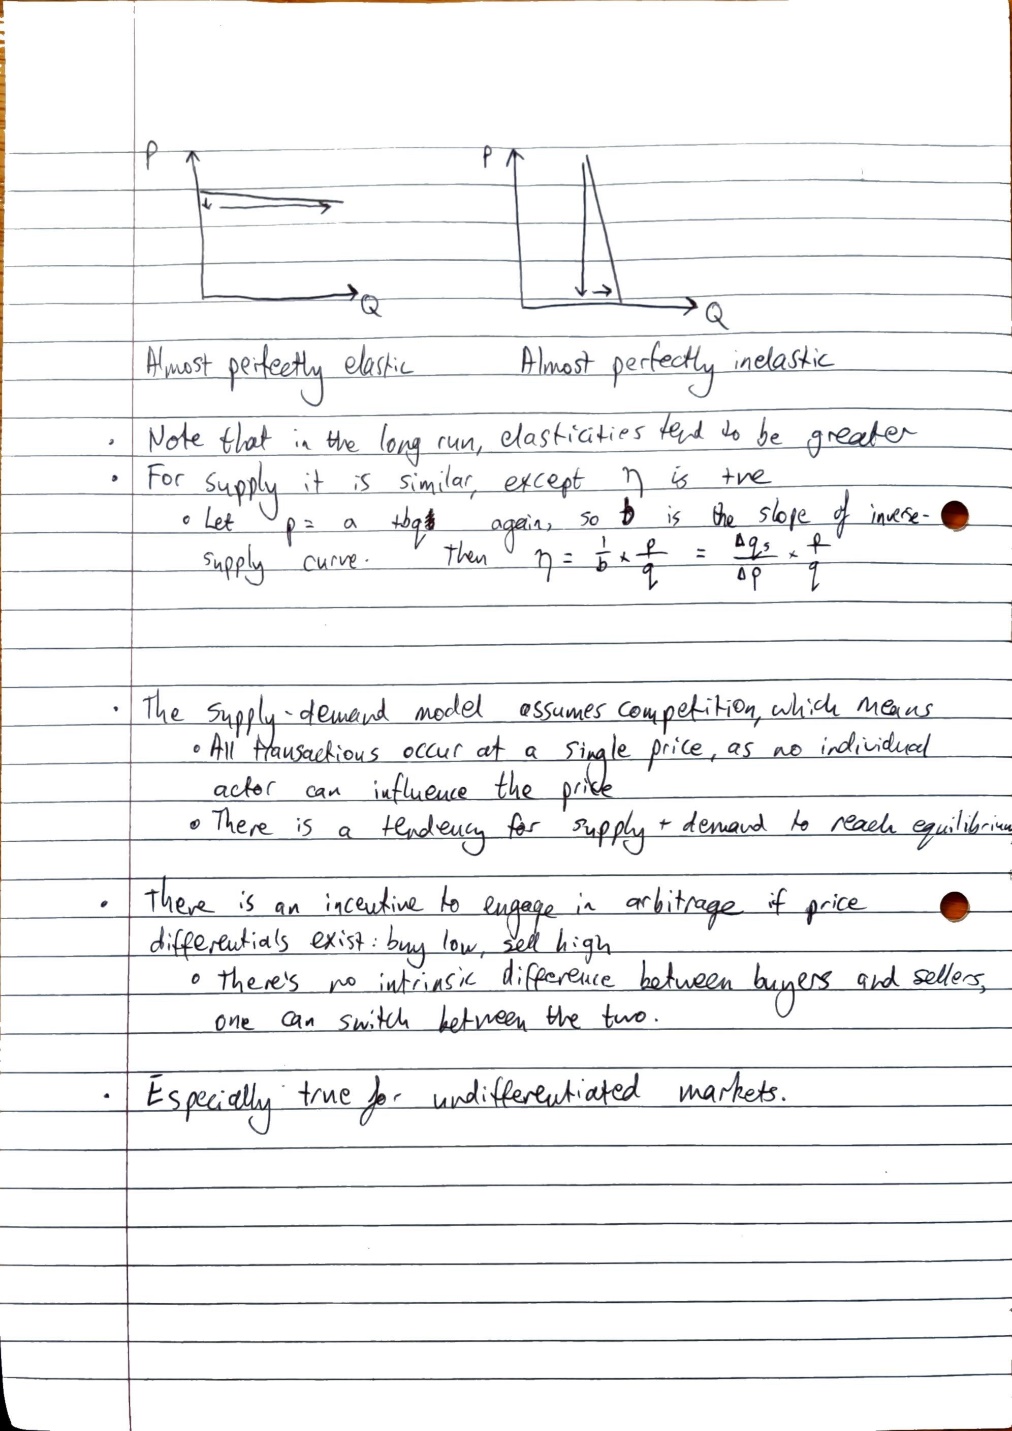 P P
Q Q
Almost perfectly elastic Almost perfectly inelastic
· Note that in the long run, elasticities tend to be greater
· For supply it is similar, except η is +ve
∘ Let p = a + bq again, so b is the slope of inverse-
supply curve. Then η = 1/b × p/q = Δqs/Δp × p/q
· The supply-demand model assumes competition, which means
∘ All transactions occur at a single price, as no individual
actor can influence the price
∘ There is a tendency for supply + demand to reach equilibrium
· There is an incentive to engage in arbitrage if price
differentials exist: buy low, sell high
∘ There's no intrinsic difference between buyers and sellers,
one can switch between the two.
· Especially true for undifferentiated markets.